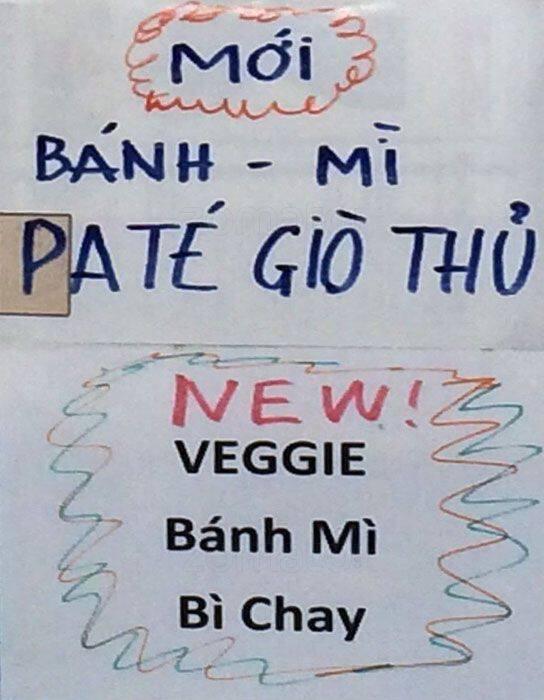 MỚI
BÁNH - MÌ
PATÉ GIÒ THỦ
NEW!
VEGGIE
Bánh Mì
Bì Chay